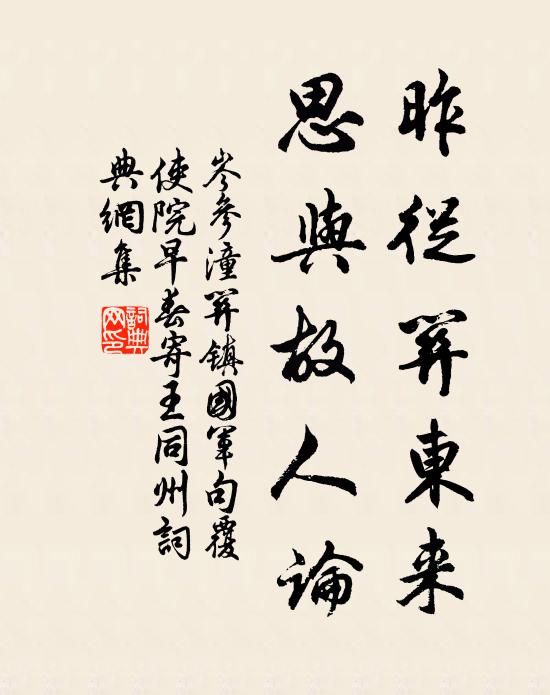 昨從關東来
思與故人論
岑參潼關鎮國軍句覆
使院早春寄王同州詞
典網集
詞典网印